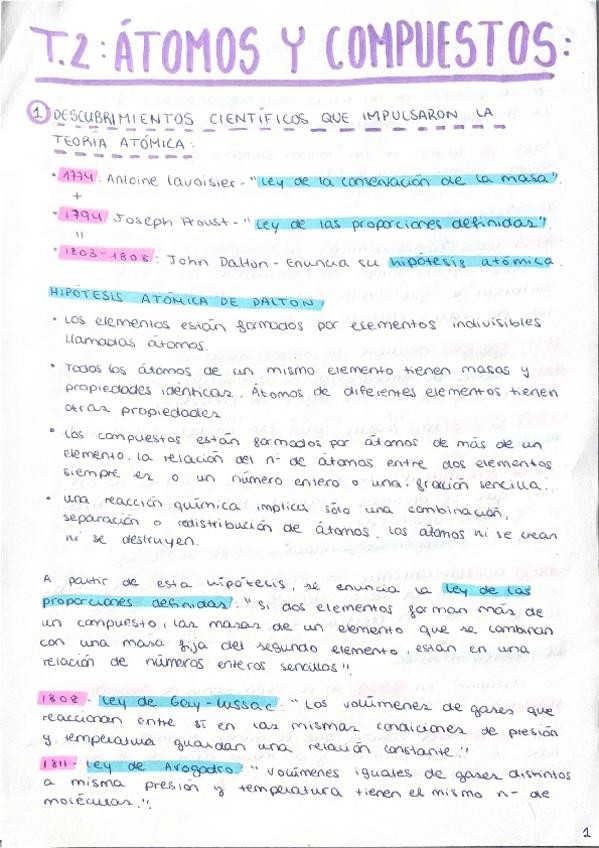 T.2: ÁTOMOS Y COMPUESTOS:
1 DESCUBRIMIENTOS CIENTÍFICOS QUE IMPULSARON LA
TEORÍA ATÓMICA:
• 1774: Antoine Lavoisier - "Ley de la conservación de la masa".
+
• 1794 Joseph Proust - "Ley de las proporciones definidas".
=
• 1803-1808: John Dalton - Enuncia su hipótesis atómica.
HIPÓTESIS ATÓMICA DE DALTON
• Los elementos están formados por elementos indivisibles
llamadas átomos.
• Todos los átomos de un mismo elemento tienen masas y
propiedades idénticas. Átomos de diferentes elementos tienen
otras propiedades
• Los compuestos están formados por átomos de más de un
elemento. La relación del nº de átomos entre dos elementos
siempre es o un número entero o una fración sencilla.
• Una reacción química implica sólo una combinación,
separación o redistribución de átomos. Los átomos ni se crean
ni se destruyen.
A partir de esta hipótesis, se enuncia la Ley de las
proporciones definidas: "Si dos elementos forman más de
un compuesto, las masas de un elemento que se combinan
con una masa fija del segundo elemento, están en una
relación de números enteros sencillos".
1808 - Ley de Gay-Lussac: "Los volúmenes de gases que
reaccionan entre sí en las mismas condiciones de presión
y temperatura guardan una relación constante."
1811 - Ley de Avogadro: "volúmenes iguales de gases distintos
a misma presión y temperatura tienen el mismo nº de
moléculas."
1